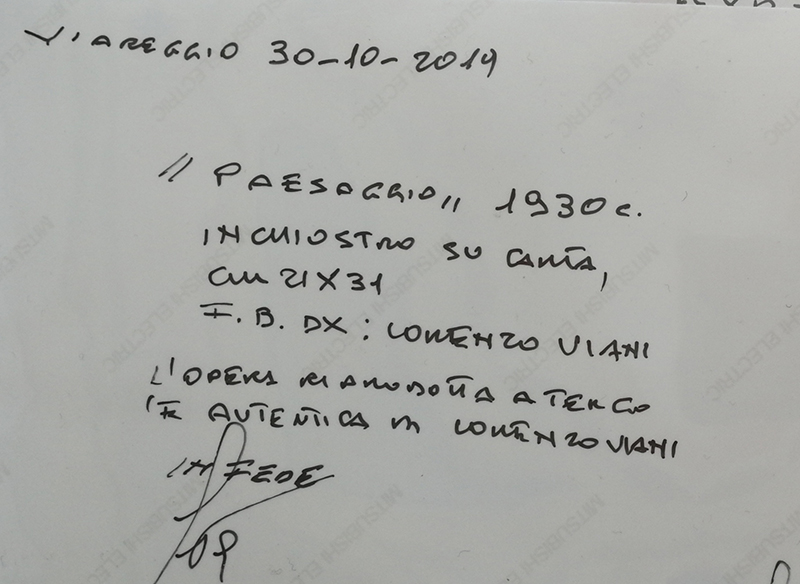 VIAREGGIO 30-10-2019
"PAESAGGIO,, 1930 c.
INCHIOSTRO SU CARTA,
cm 21X31
F. B. DX : LORENZO VIANI
L'OPERA RIPRODOTTA A TERGO
'E AUTENTICA DI LORENZO VIANI
IN FEDE
MITSUBISHI ELECTRIC